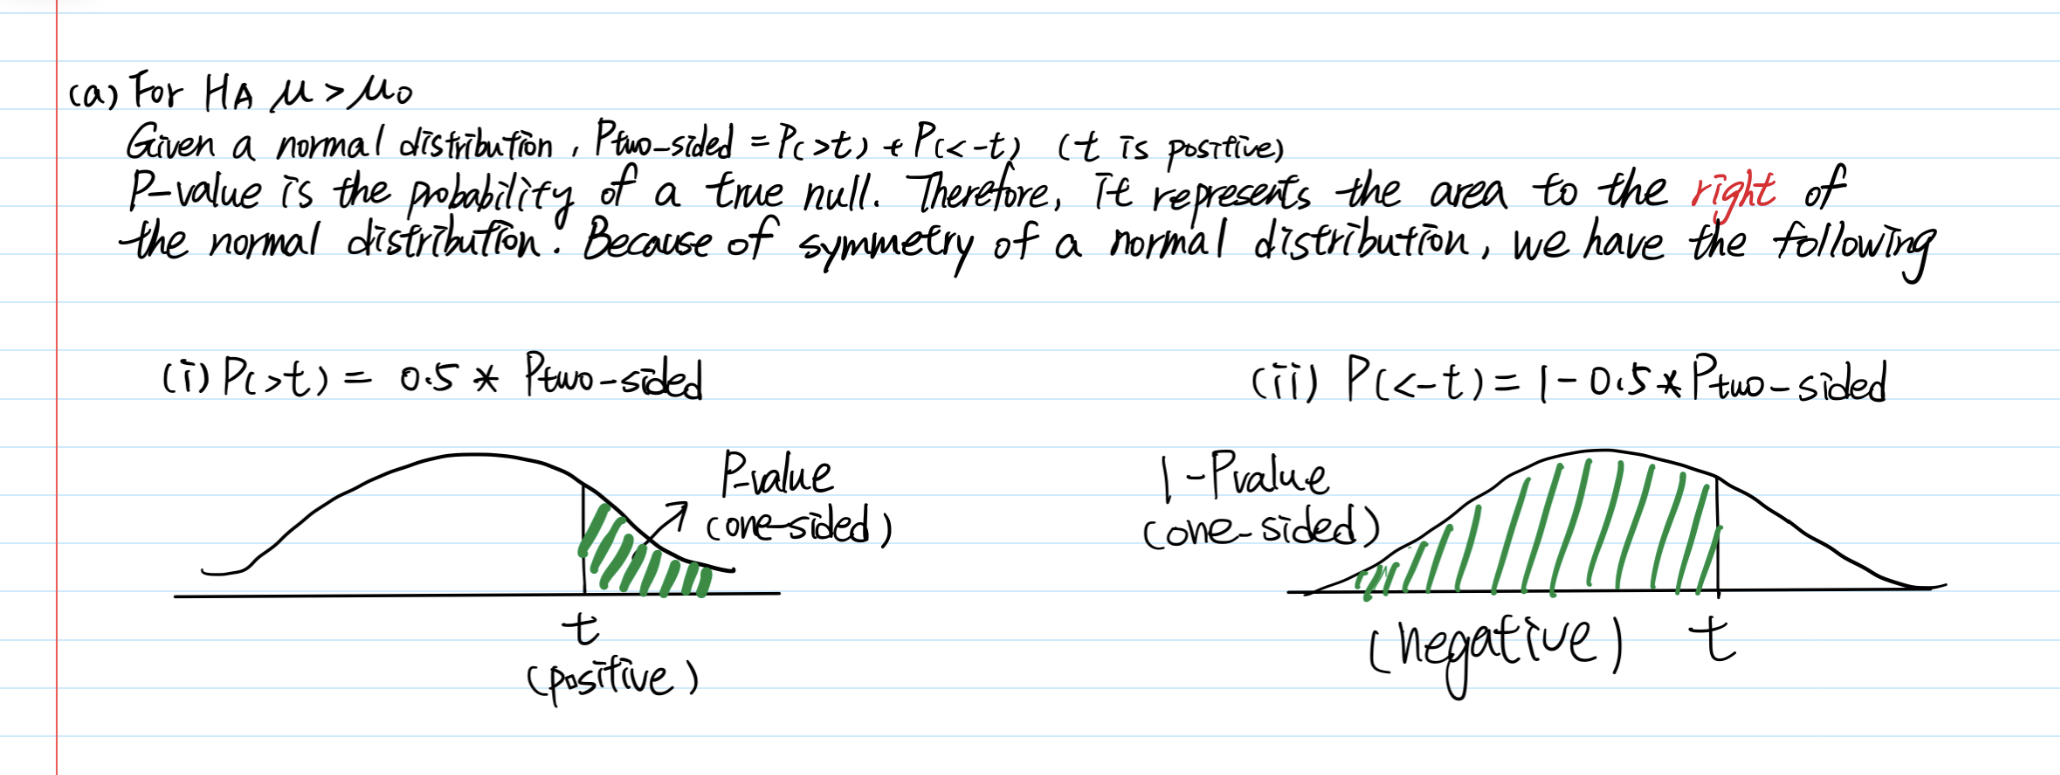 (a) For HA μ > μ0
Given a normal distribution, Ptwo-sided = P(>t) + P(<-t) (t is positive)
P-value is the probability of a true null. Therefore, it represents the area to the right of
the normal distribution. Because of symmetry of a normal distribution, we have the following
(i) P(>t) = 0.5 * Ptwo-sided
(ii) P(<-t) = 1 - 0.5 * Ptwo-sided
P-value
(one-sided)
t
(positive)
1-Pvalue
(one-sided)
(negative) t